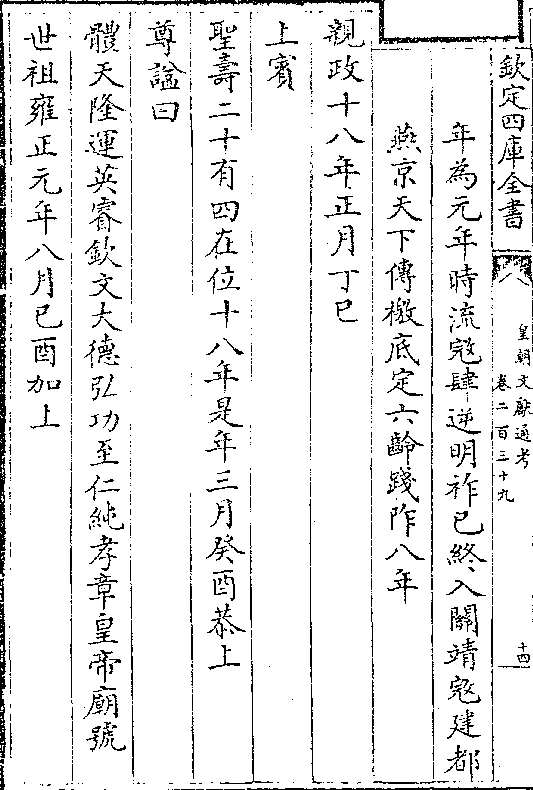 欽定四庫全書
皇朝文獻通考
卷二百三十九
十四
年為元年時流寇肆逆明祚已終入關靖寇建都
燕京天下傳檄底定六齡踐阼八年
親政十八年正月丁巳
上賓
聖壽二十有四在位十八年是年三月癸酉恭上
尊諡曰
體天隆運英睿欽文大德弘功至仁純孝章皇帝廟號
世祖雍正元年八月己酉加上